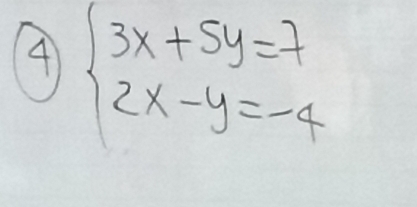 ④ 3x+5y=7
2x-y=-4